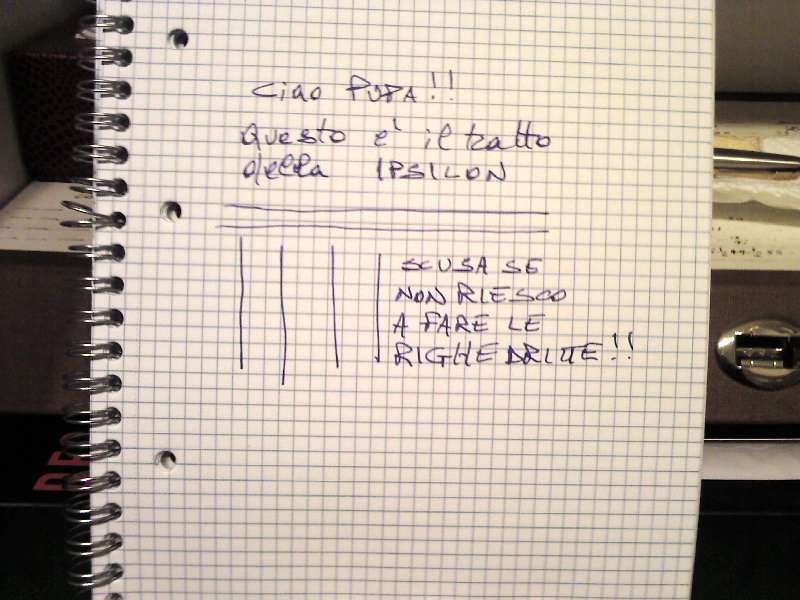 Ciao PUPA!!
Questo e' il tratto
della IPSILON
SCUSA SE
NON RIESCO
A FARE LE
RIGHE DRITTE!!